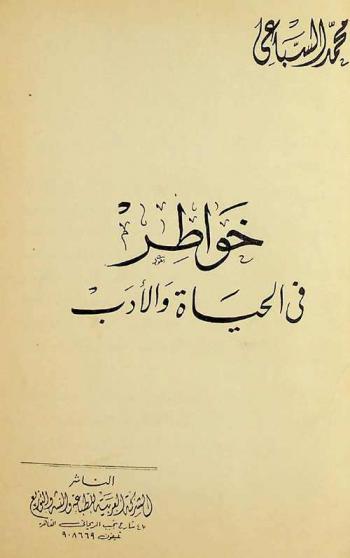 محمد السباعى
خَواطِرْ
فى الحيَاة وَالأدَبْ
الناشر
الشركة العربية للطباعة والنشر والتوزيع
٤٧ شارع نجيب الريحانى القاهرة
تليفون ٩٠٨٦٦٩